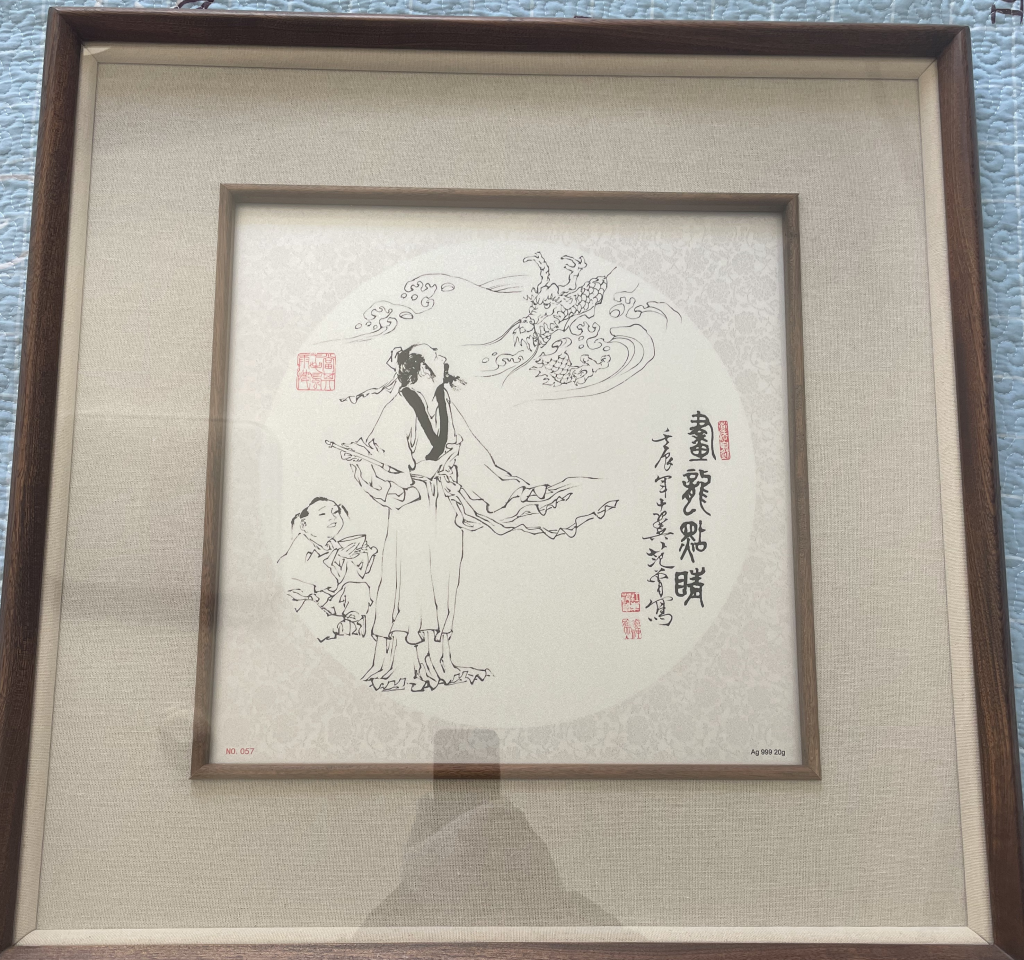 畫龍點睛
壬辰年十翼范曾寫
NO. 057
Ag 999 20g